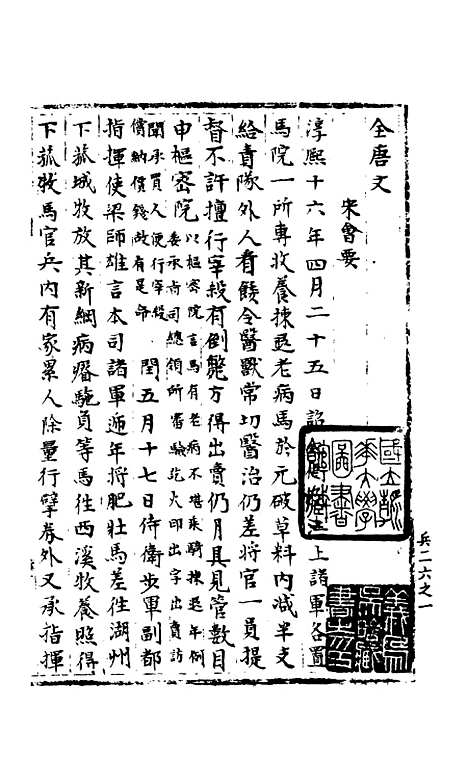 全唐文
宋會要
淳熙十六年四月二十五日詔 上諸軍各置
馬院一所專收養揀退老病馬於元破草料內減半支
給責隊外人看餧令醫獸常切醫治仍差將官一員提
督不許擅行宰殺有倒斃方得出賣仍月具見管數目
申樞密院以樞密院言馬有老病不堪乘騎揀退年例
委承尚司總領所審驗訖火印出字出賣訪
聞承買人便行宰殺
償納價錢故有是命 閏五月十七日侍衛步軍副都
指揮使梁師雄言本司諸軍遞年將肥壯馬差往湖州
下菰城牧放其新綱病瘠駞負等馬往西溪牧養照得
下菰牧馬官兵內有家累人除量行孳券外又承指揮
國立北平
圖書
兵二六之一